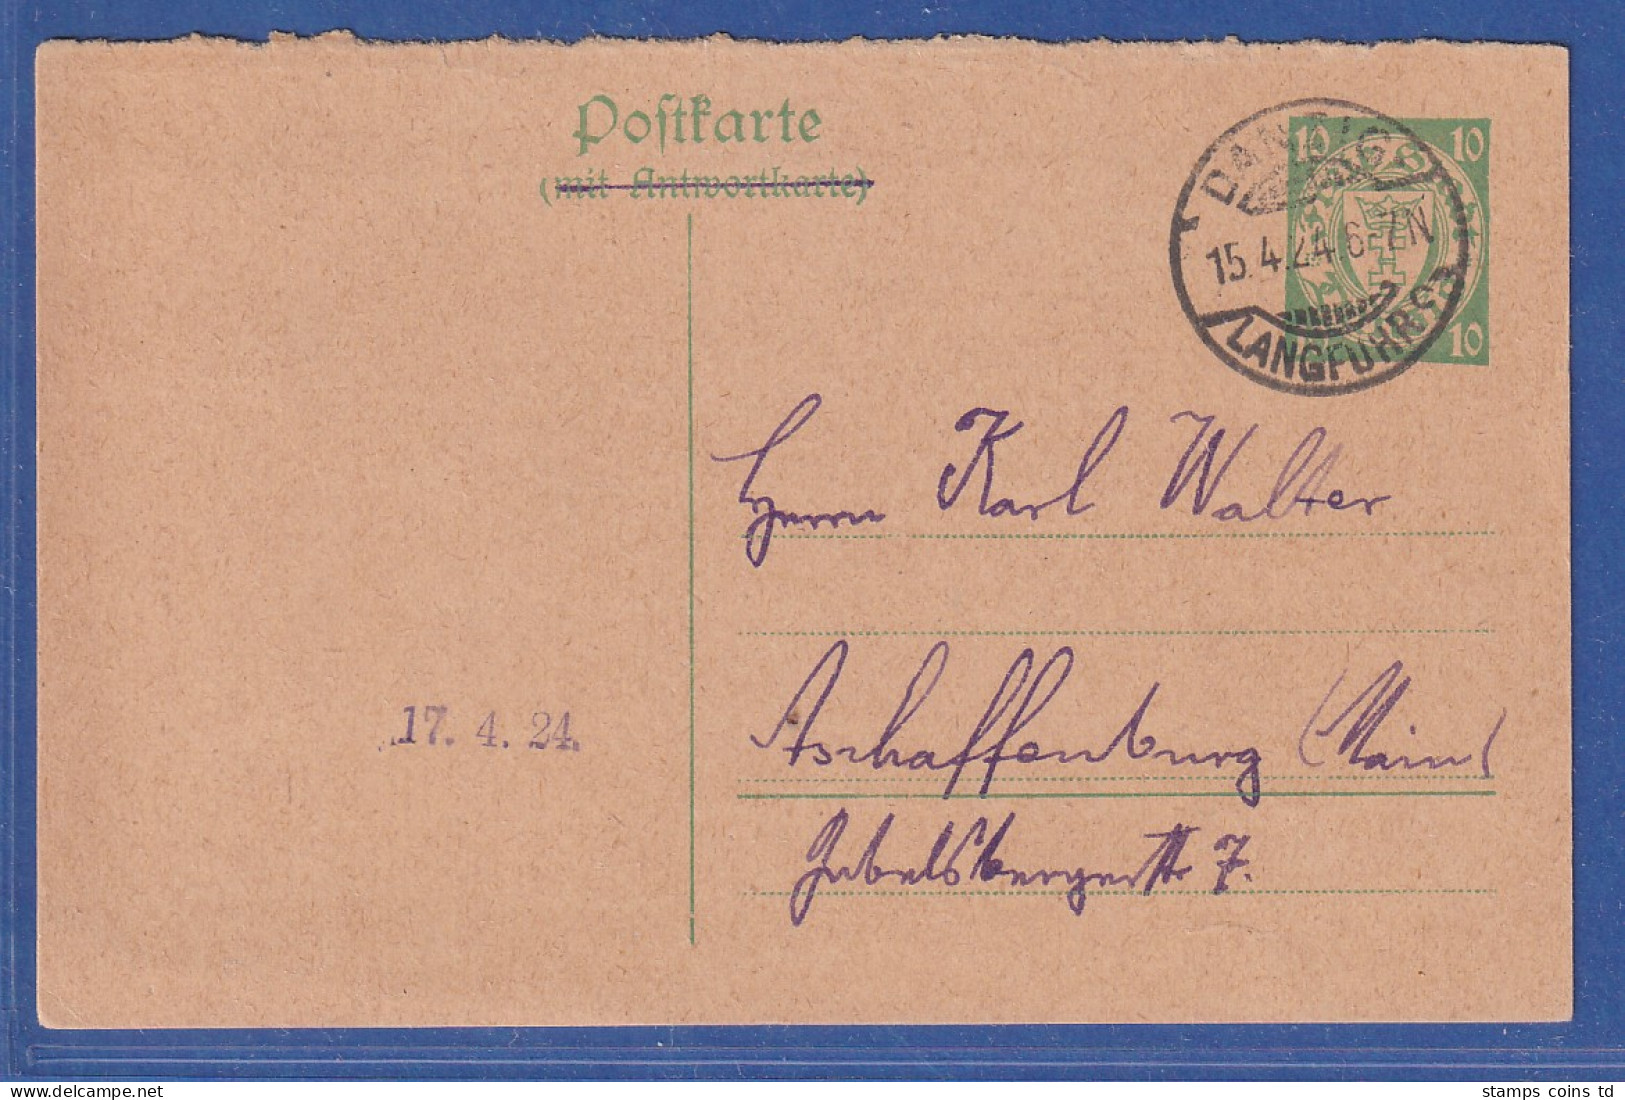 Postkarte
(mit Antwortkarte)
10 10
DANZIG
15.4.24.6-7N
LANGFUHR
10
Herrn Karl Walter
Aschaffenburg (Main)
17. 4. 24.
7.
stamps coins td